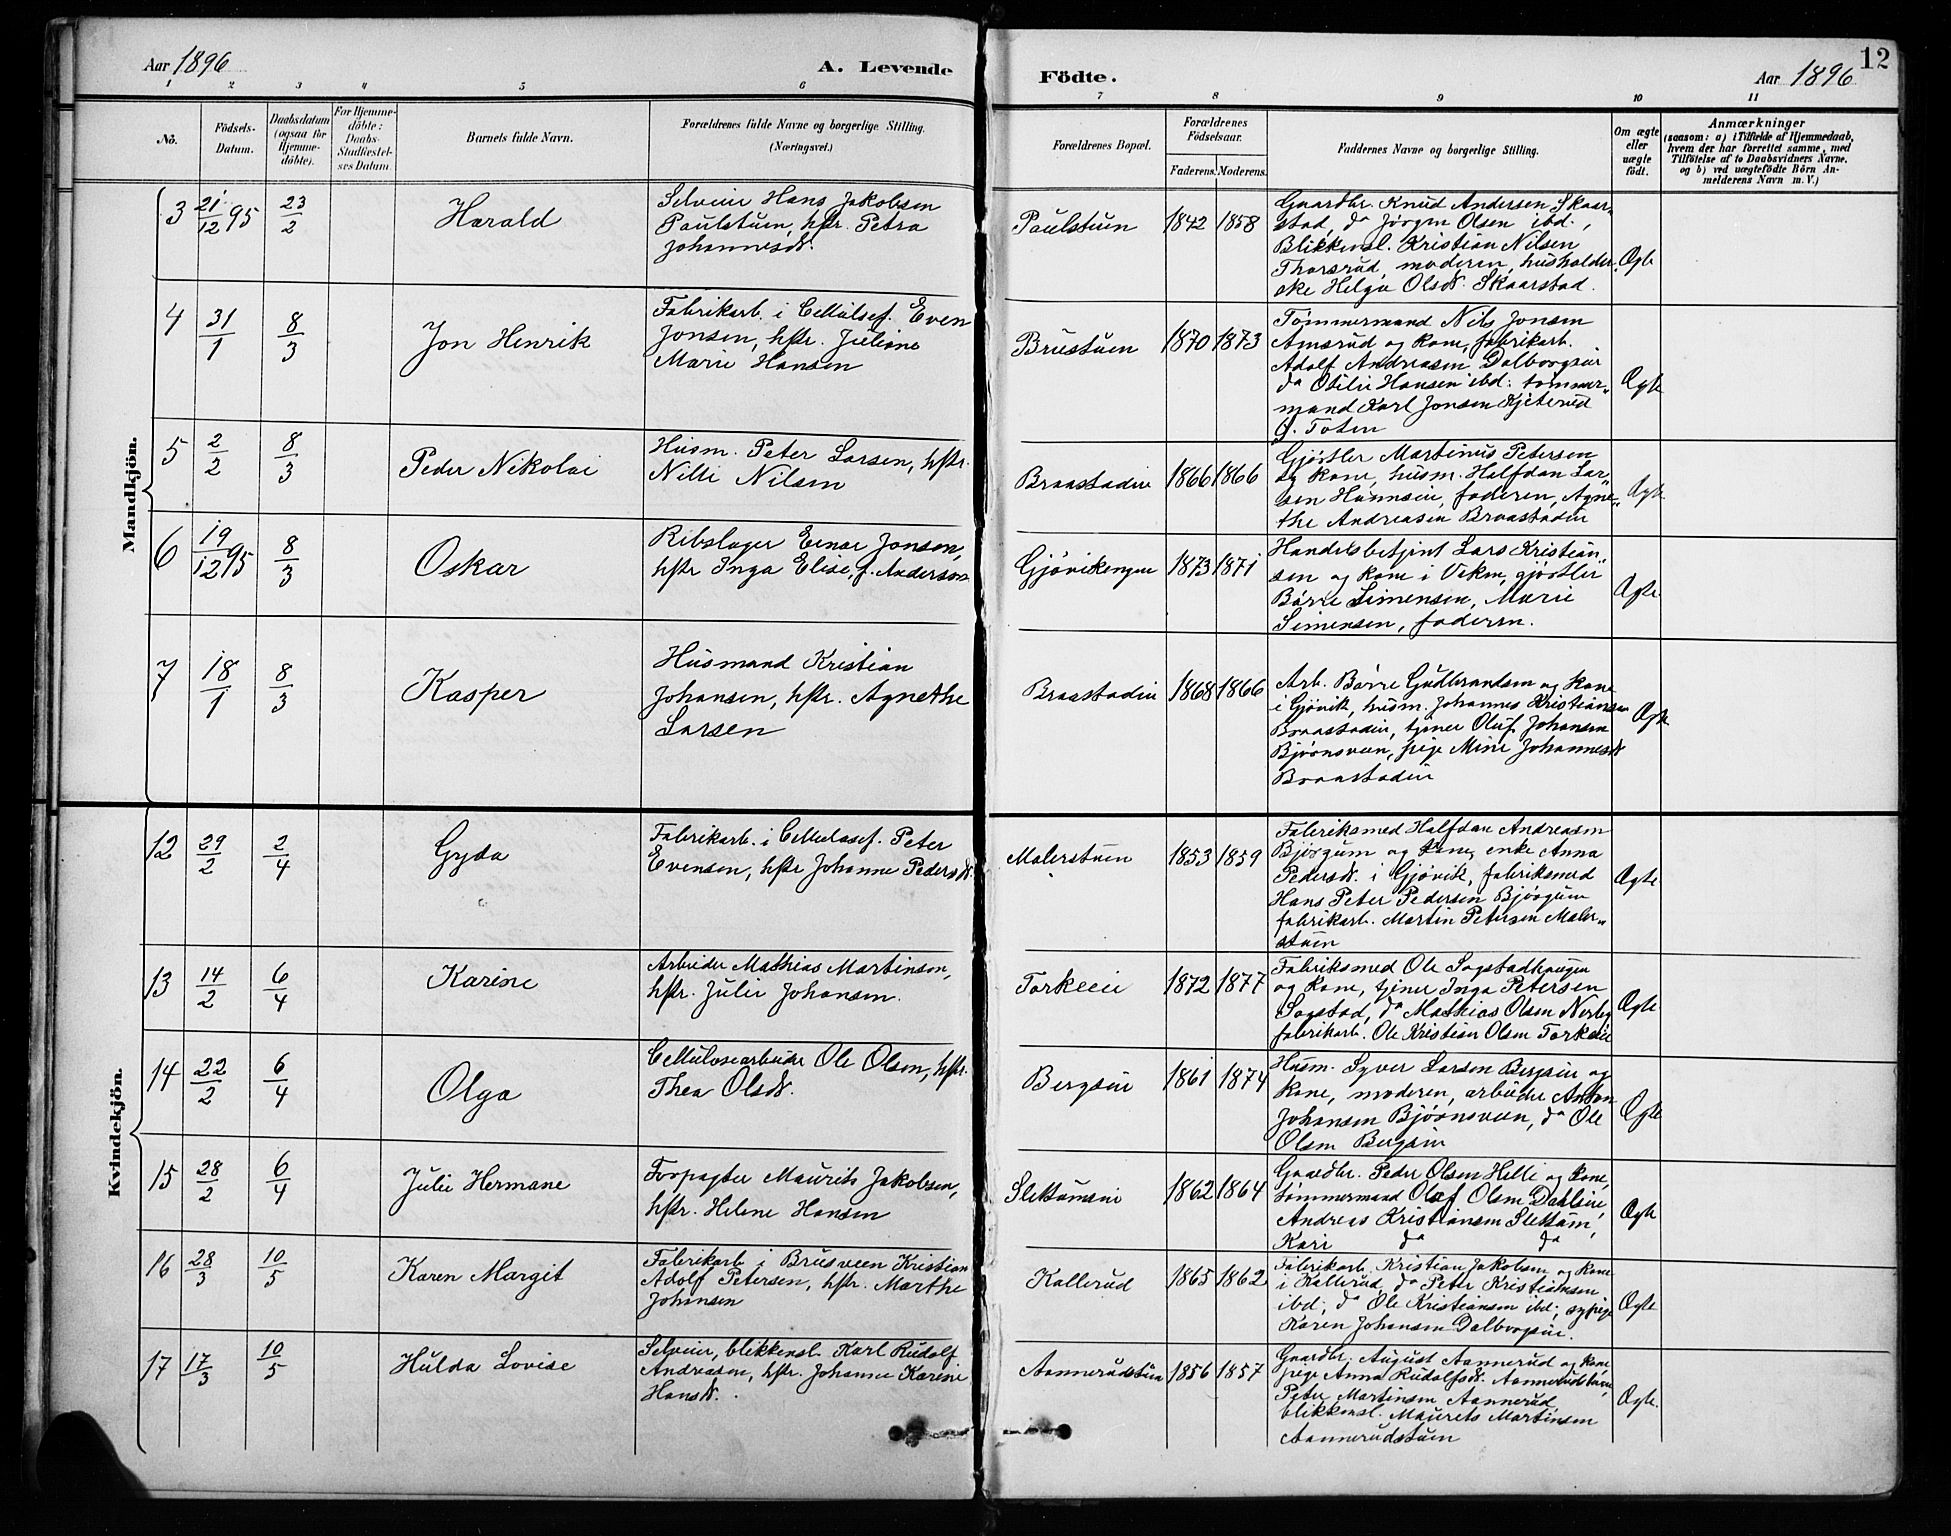 Aar 1896
A. Levende
Födte.
Aar 1896
12
1 2 3 4 5 6 7 8 9 10 11
No.
Födsels-
Datum.
Daabsdatum
(ogsaa för
Hjemme-
döbte).
For Hjemme-
döbte:
Daabs-
Stadfæstel-
ses Datum.
Barnets fulde Navn.
Forældrenes fulde Navne og borgerlige Stilling.
(Næringsvei.)
Forældrenes Bopæl.
Forældrenes
Födselsaar.
Faderens. Moderens.
Faddernes Navne og borgerlige Stilling.
Om ægte
eller
uægte
födt.
Anmærkninger
(saasom: a) i Tilfælde af Hjemmedaab,
hvem der har forrettet samme, med
Tilföielse af to Daabsvidners Navne,
og b) ved uægtefödte Börn An-
melderens Navn m. V.)
Mandkjön.
3 21/12 95 23/2 Harald
Selveier Hans Jakobsen
Paulstuen, hstr. Petra
Johannesdtr.
Paulstuen 1842 1858
Gaardbr. Knud Andersen Skaar-
stad, do Jørgen Olsen ibd.,
Blikkensl. Kristian Nilsen
Thorsrud, moderen, husholder-
ske Helga Olsdtr. Skaarstad.
Ægte
4 31/1 8/3 Jon Henrik
Fabrikarb. i Cellulosef. Even
Jonsen, hstr. Juliane
Marie Hansen
Brustuen 1870 1873
Tømmermand Nils Jonsen
Amsrud og kone, fabrikarb.
Adolf Andreasen Dalborgseie
do Otilie Hansen ibd. tømmer-
mand Karl Jonsen Kjeterud
Ø. Toten
Ægte
5 2/2 8/3 Peder Nikolai
Husm. Peter Larsen, hstr.
Nilli Nilsen
Braastadeie 1866 1866
Gjørtler Martinus Petersen
og kone, husm. Halfdan Lar-
sen Hunnseie, faderen, Agne-
the Andreasen Braastadeie
Ægte
6 19/12 95 8/3 Oskar
Rebslager Einar Jonsen,
hstr Inga Elise, f. Anderson
Gjøvikengen 1873 1871
Handelsbetjent Lars Kristian-
sen og kone i Viken, gjørtler
Børre Simensen, Marie
Simensen, faderen.
Ægte.
7 18/1 8/3 Kasper
Husmand Kristian
Johansen, hstr. Agnethe
Larsen
Braastadeie 1868 1866
Arb. Børre Gudbrandsen og kone
i Gjøvik, husm. Johannes Kristiansen
Braastadeie, tjener Oluf Johansen
Bjørnsveen, pige Mine Johannesdtr
Braastadeie
Ægte
Kvindekjön.
12 29/2 2/4 Gyda
Fabrikarb. i Cellulosef. Peter
Evensen, hstr Johanne Pedersdtr.
Malerstuen 1853 1859
Fabriksmed Halfdan Andreasen
Bjørgum og kone, enke Anna
Pedersdtr. i Gjøvik, fabriksmed
Hans Peter Pedersen Bjørgum
fabrikarb. Martin Petersen Maler-
stuen
Ægte
13 14/2 6/4 Karine
Arbeider Mathias Martinson,
hstr. Julie Johansen.
Torkeeie 1872 1877
Fabriksmed Ole Sogstadhaugen
og kone, tjener Inga Petersen
Sogstad, do Mathias Olsen Nerby
fabrikarb. Ole Kristian Olsen Torkeeie
Ægte
14 22/2 6/4 Olga
Cellulosearbeider Ole Olsen, hstr.
Thea Olsdtr.
Bergseie 1861 1874
Husm. Syver Larsen Bergseie og
kone, moderen, arbeider Anton
Johansen Bjørnsveen, do Ole
Olsen Bergseie
Ægte
15 28/2 6/4 Julie Hermane
Forpagter Maurits Jakobsen,
hstr. Helene Hansen
Slettumeie 1862 1864
Gaardbr. Peder Olsen Helli og kone,
tømmermand Olaf Olsen Dahlseie,
Andreas Kristiansen Slettum,
Kari do do
Ægte
16 28/3 10/5 Karen Margit
Fabrikarb i Brusveen Kristian
Adolf Petersen, hstr. Marthe
Johansen
Kallerud 1865 1862
Fabrikarb. Kristian Jakobsen og kone
i Kallerud, do Peter Kristiansen
ibd., do Ole Kristiansen ibd., sypige
Karen Johansen Dalborgseie.
Ægte
17 17/3 10/5 Hulda Lovise
Selveier, blikkensl. Karl Rudolf
Andreasen, hstr. Johanne Karine
Hansdtr.
Aannerudstuen 1856 1857
Gaardbr. August Aannerud og kone
pige Anna Rudolfsdtr. Aannerudstuen,
Peter Martinsen Aannerud,
blikkensl. Maurets Martinsen
Aannerudstuen
Ægte.